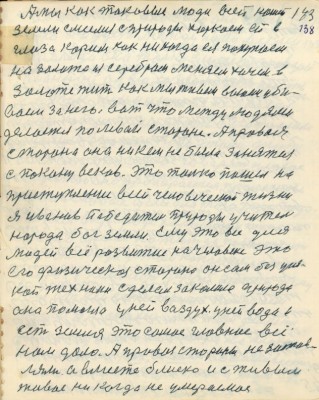 143
138
А мы как таковые люди всей нашей
земли смеемся природы харкаем ей в
глаза корим как никогда ея покупаем
на золото и серебром меняем хотим в
золоте жить как мы живем воюем уби-
ваем за него. вот что между людями
делается по левой стороне. А правая
сторона она никем не была занятая
с покону веков. Это только пошел на
приступление всей человеческой жизни
я Иванив победитель природы учитель
народа бог земли. Ему это все для
людей всё развитие на человеке это
Его физическая сторона он сам без ника-
кой техники сделал закалка природа
она помогла у ней воздух у ней вода и
есть земля это самое главное всё
нам дало. А правая сторона не
вместе близко и с живым
живое никогда не умираемое